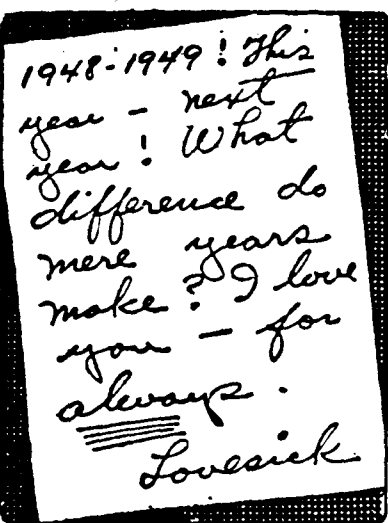 1948-1949! This
year - next
year! What
difference do
mere years
make? I love
you - for
always.
Lovesick